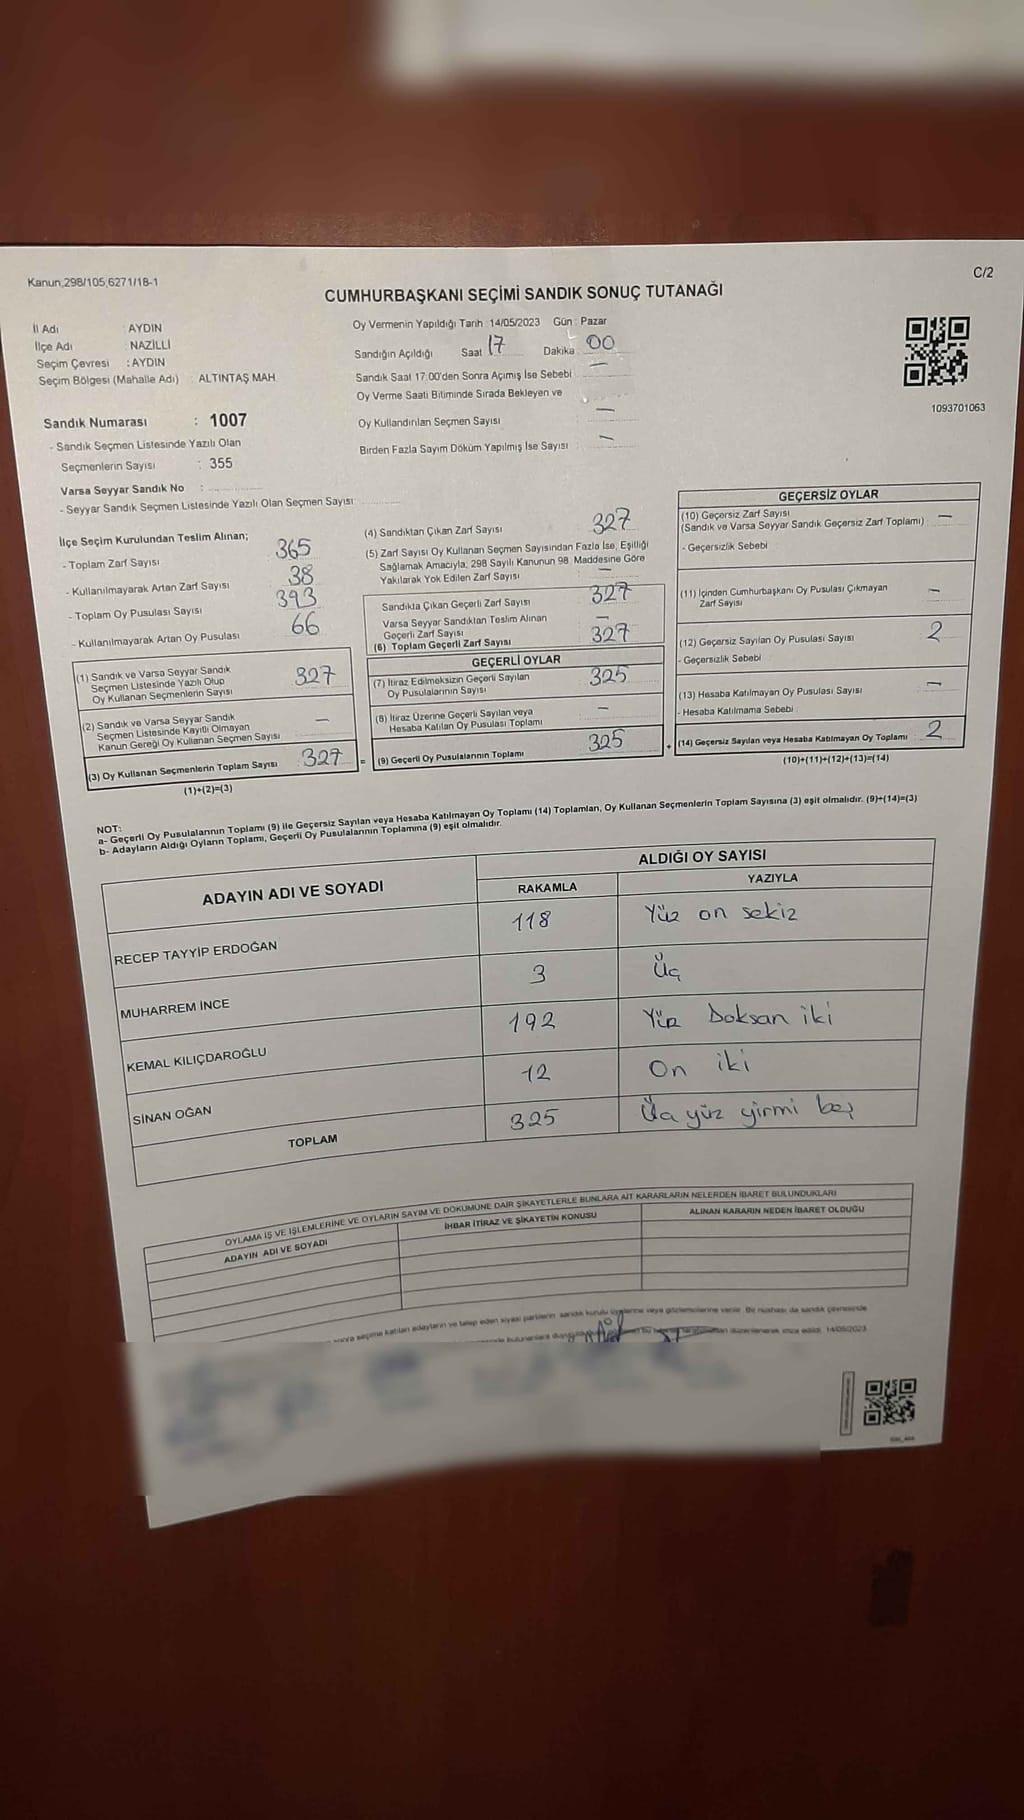 Kanun,298/105,6271/18-1
C/2
CUMHURBAŞKANI SEÇİMİ SANDIK SONUÇ TUTANAĞI
İl Adı : AYDIN
İlçe Adı : NAZİLLİ
Seçim Çevresi : AYDIN
Seçim Bölgesi (Mahalle Adı) : ALTINTAŞ MAH.
Oy Vermenin Yapıldığı Tarih :14/05/2023 Gün : Pazar
Sandığın Açıldığı Saat 17 Dakika : 00
Sandık Saat 17:00'den Sonra Açımış İse Sebebi : —
Oy Verme Saati Bitiminde Sırada Bekleyen ve
Oy Kullandırılan Seçmen Sayısı : —
Birden Fazla Sayım Döküm Yapılmış İse Sayısı : —
1093701063
Sandık Numarası : 1007
- Sandık Seçmen Listesinde Yazılı Olan
Seçmenlerin Sayısı : 355
Varsa Seyyar Sandık No :
- Seyyar Sandık Seçmen Listesinde Yazılı Olan Seçmen Sayısı:
İlçe Seçim Kurulundan Teslim Alınan;
- Toplam Zarf Sayısı 365
- Kullanılmayarak Artan Zarf Sayısı 38
- Toplam Oy Pusulası Sayısı 393
- Kullanılmayarak Artan Oy Pusulası 66
(1) Sandık ve Varsa Seyyar Sandık
Seçmen Listesinde Yazılı Olup
Oy Kullanan Seçmenlerin Sayısı 327
(2) Sandık ve Varsa Seyyar Sandık
Seçmen Listesinde Kayıtlı Olmayan
Kanun Gereği Oy Kullanan Seçmen Sayısı —
(3) Oy Kullanan Seçmenlerin Toplam Sayısı 327
(1)+(2)=(3)
(4) Sandıktan Çıkan Zarf Sayısı 327
(5) Zarf Sayısı Oy Kullanan Seçmen Sayısından Fazla İse, Eşitliği
Sağlamak Amacıyla, 298 Sayılı Kanunun 98. Maddesine Göre
Yakılarak Yok Edilen Zarf Sayısı —
Sandıkta Çıkan Geçerli Zarf Sayısı 327
Varsa Seyyar Sandıktan Teslim Alınan
Geçerli Zarf Sayısı —
(6) Toplam Geçerli Zarf Sayısı 327
GEÇERLİ OYLAR
(7) İtiraz Edilmeksizin Geçerli Sayılan
Oy Pusulalarının Sayısı 325
(8) İtiraz Üzerine Geçerli Sayılan veya
Hesaba Katılan Oy Pusulası Toplamı —
= (9) Geçerli Oy Pusulalarının Toplamı 325 +
GEÇERSİZ OYLAR
(10) Geçersiz Zarf Sayısı
(Sandık ve Varsa Seyyar Sandık Geçersiz Zarf Toplamı) —
- Geçersizlik Sebebi
(11) İçinden Cumhurbaşkanı Oy Pusulası Çıkmayan
Zarf Sayısı —
(12) Geçersiz Sayılan Oy Pusulası Sayısı 2
- Geçersizlik Sebebi
(13) Hesaba Katılmayan Oy Pusulası Sayısı —
- Hesaba Katılmama Sebebi
(14) Geçersiz Sayılan veya Hesaba Katılmayan Oy Toplamı 2
(10)+(11)+(12)+(13)=(14)
NOT:
a- Geçerli Oy Pusulalarının Toplamı (9) ile Geçersiz Sayılan veya Hesaba Katılmayan Oy Toplamı (14) Toplamları, Oy Kullanan Seçmenlerin Toplam Sayısına (3) eşit olmalıdır. (9)+(14)=(3)
b- Adayların Aldığı Oyların Toplamı, Geçerli Oy Pusulalarının Toplamına (9) eşit olmalıdır.
ADAYIN ADI VE SOYADI
ALDIĞI OY SAYISI
RAKAMLA YAZIYLA
RECEP TAYYİP ERDOĞAN 118 Yüz on sekiz
MUHARREM İNCE 3 Üç
KEMAL KILIÇDAROĞLU 192 Yüz Doksan iki
SİNAN OĞAN 12 On iki
TOPLAM 325 Üç yüz yirmi beş
OYLAMA İŞ VE İŞLEMLERİNE VE OYLARIN SAYIM VE DÖKÜMÜNE DAİR ŞİKAYETLERLE BUNLARA AİT KARARLARIN NELERDEN İBARET BULUNDUKLARI
ADAYIN ADI VE SOYADI İHBAR İTİRAZ VE ŞİKAYETİN KONUSU ALINAN KARARIN NEDEN İBARET OLDUĞU
sonra seçime katılan adayların ve talep eden siyasi partilerin sandık kurulu üyelerine veya gözlemcilerine verilir. Bir nüshası da sandık çevresinde
düzenlenerek imza edildi. 14/05/2023